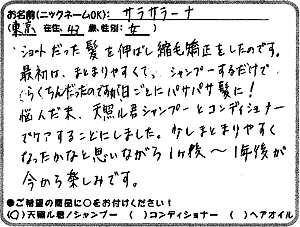 お名前(ニックネームOK): サラサラーナ
(東京 在住, 43 歳,性別: 女 )
ショートだった髪を伸ばし縮毛矯正をしたのです。
最初は、まとまりやすくて、シャンプーするだけで
らくちんだったのですが日ごとにパサパサ髪に!
悩んだ末、天照ル君シャンプーとコンディショナー
でケアすることにしました。少しまとまりやすく
なったかなと思いながら1ヶ後〜1年後が
今から楽しみです。
●ご希望の商品に○をお付けください!
(○)天照ル君シャンプー ( )コンディショナー ( )ヘアオイル